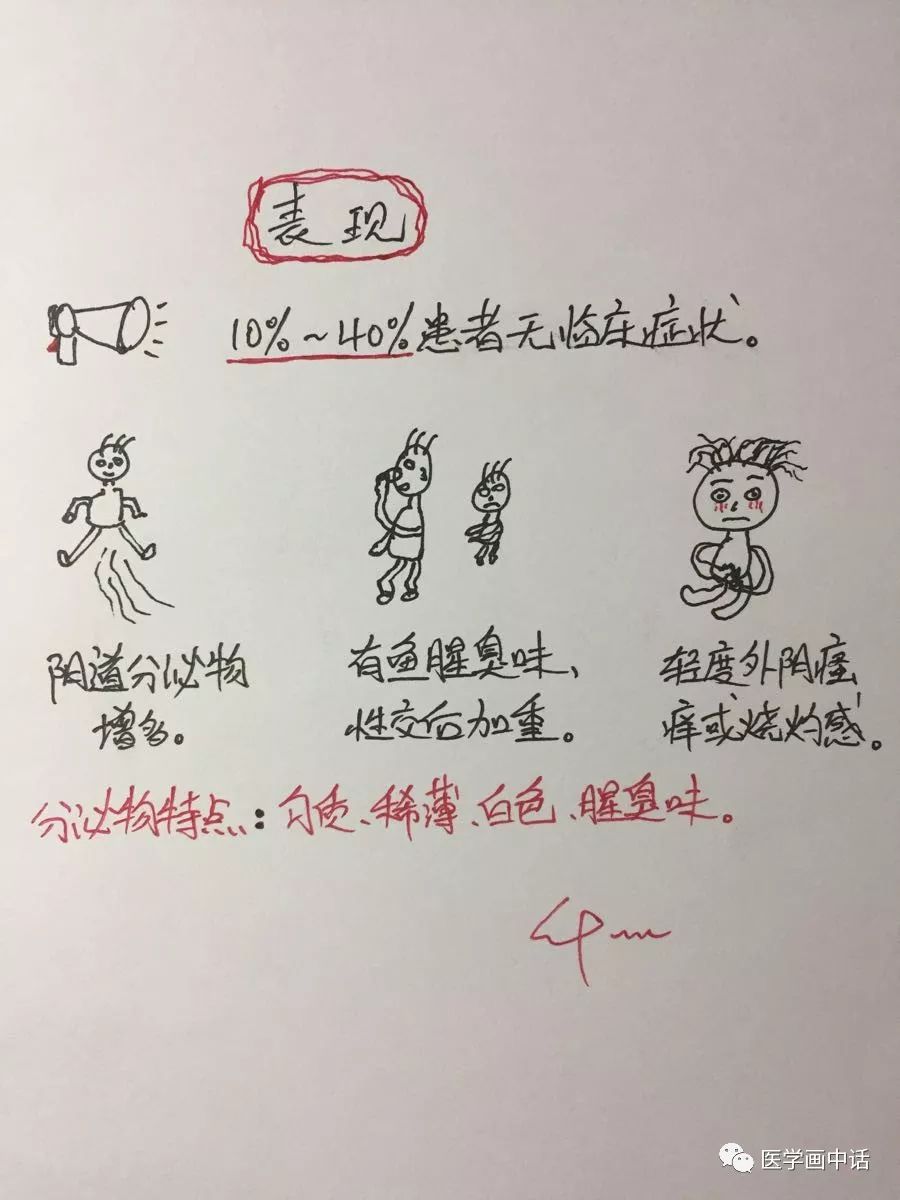 表现
10%~40%患者无临床症状。
阴道分泌物
增多。
有鱼腥臭味、
性交后加重。
轻度外阴瘙
痒或烧灼感。
分泌物特点:匀质、稀薄、白色、腥臭味。
医学画中话